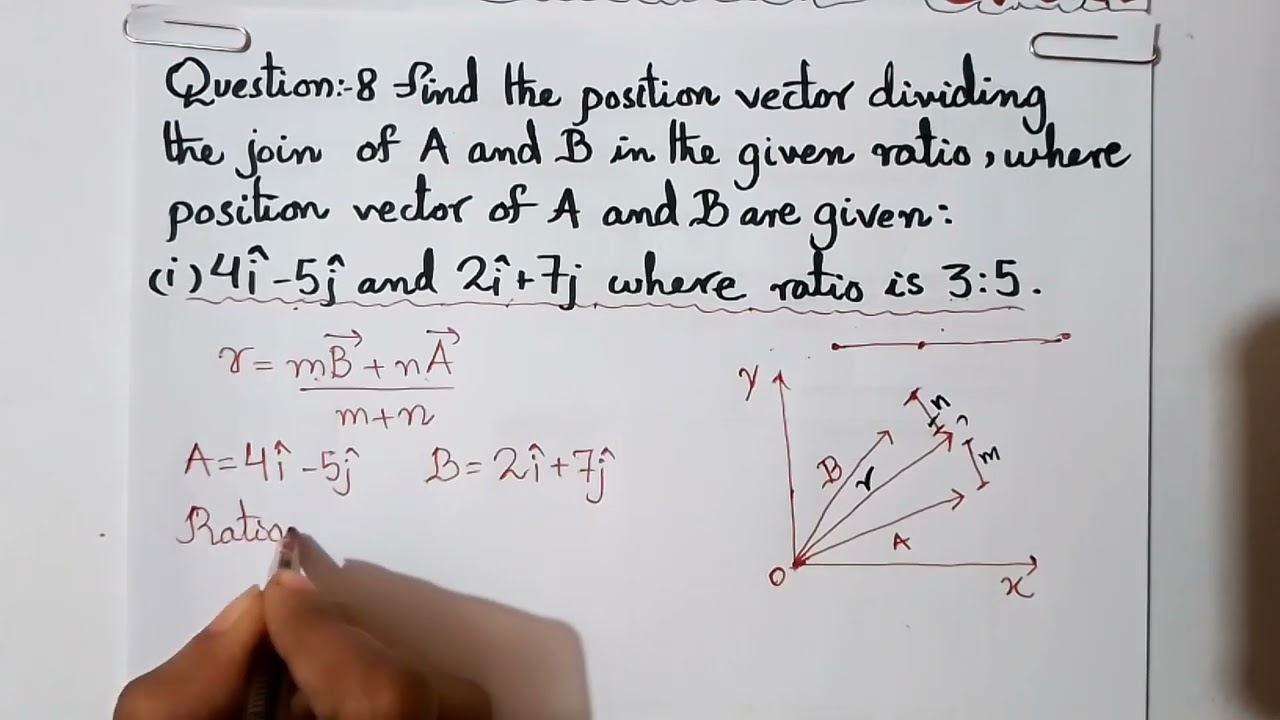 Question:-8 find the position vector dividing
the join of A and B in the given ratio, where
position vector of A and B are given:
(i) 4î-5ĵ and 2î+7j where ratio is 3:5.
r = mB⃗ + nA⃗
m+n
A=4î-5ĵ B=2î+7ĵ
Ratio
y
n
m
B
r
A
O
x